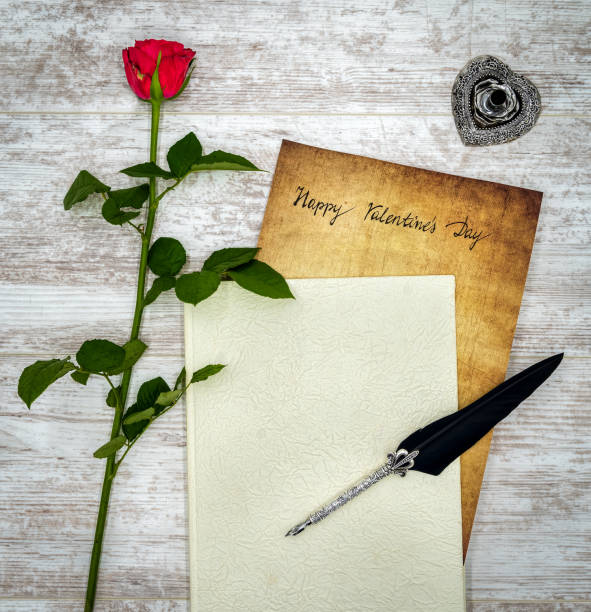 Happy Valentine's Day